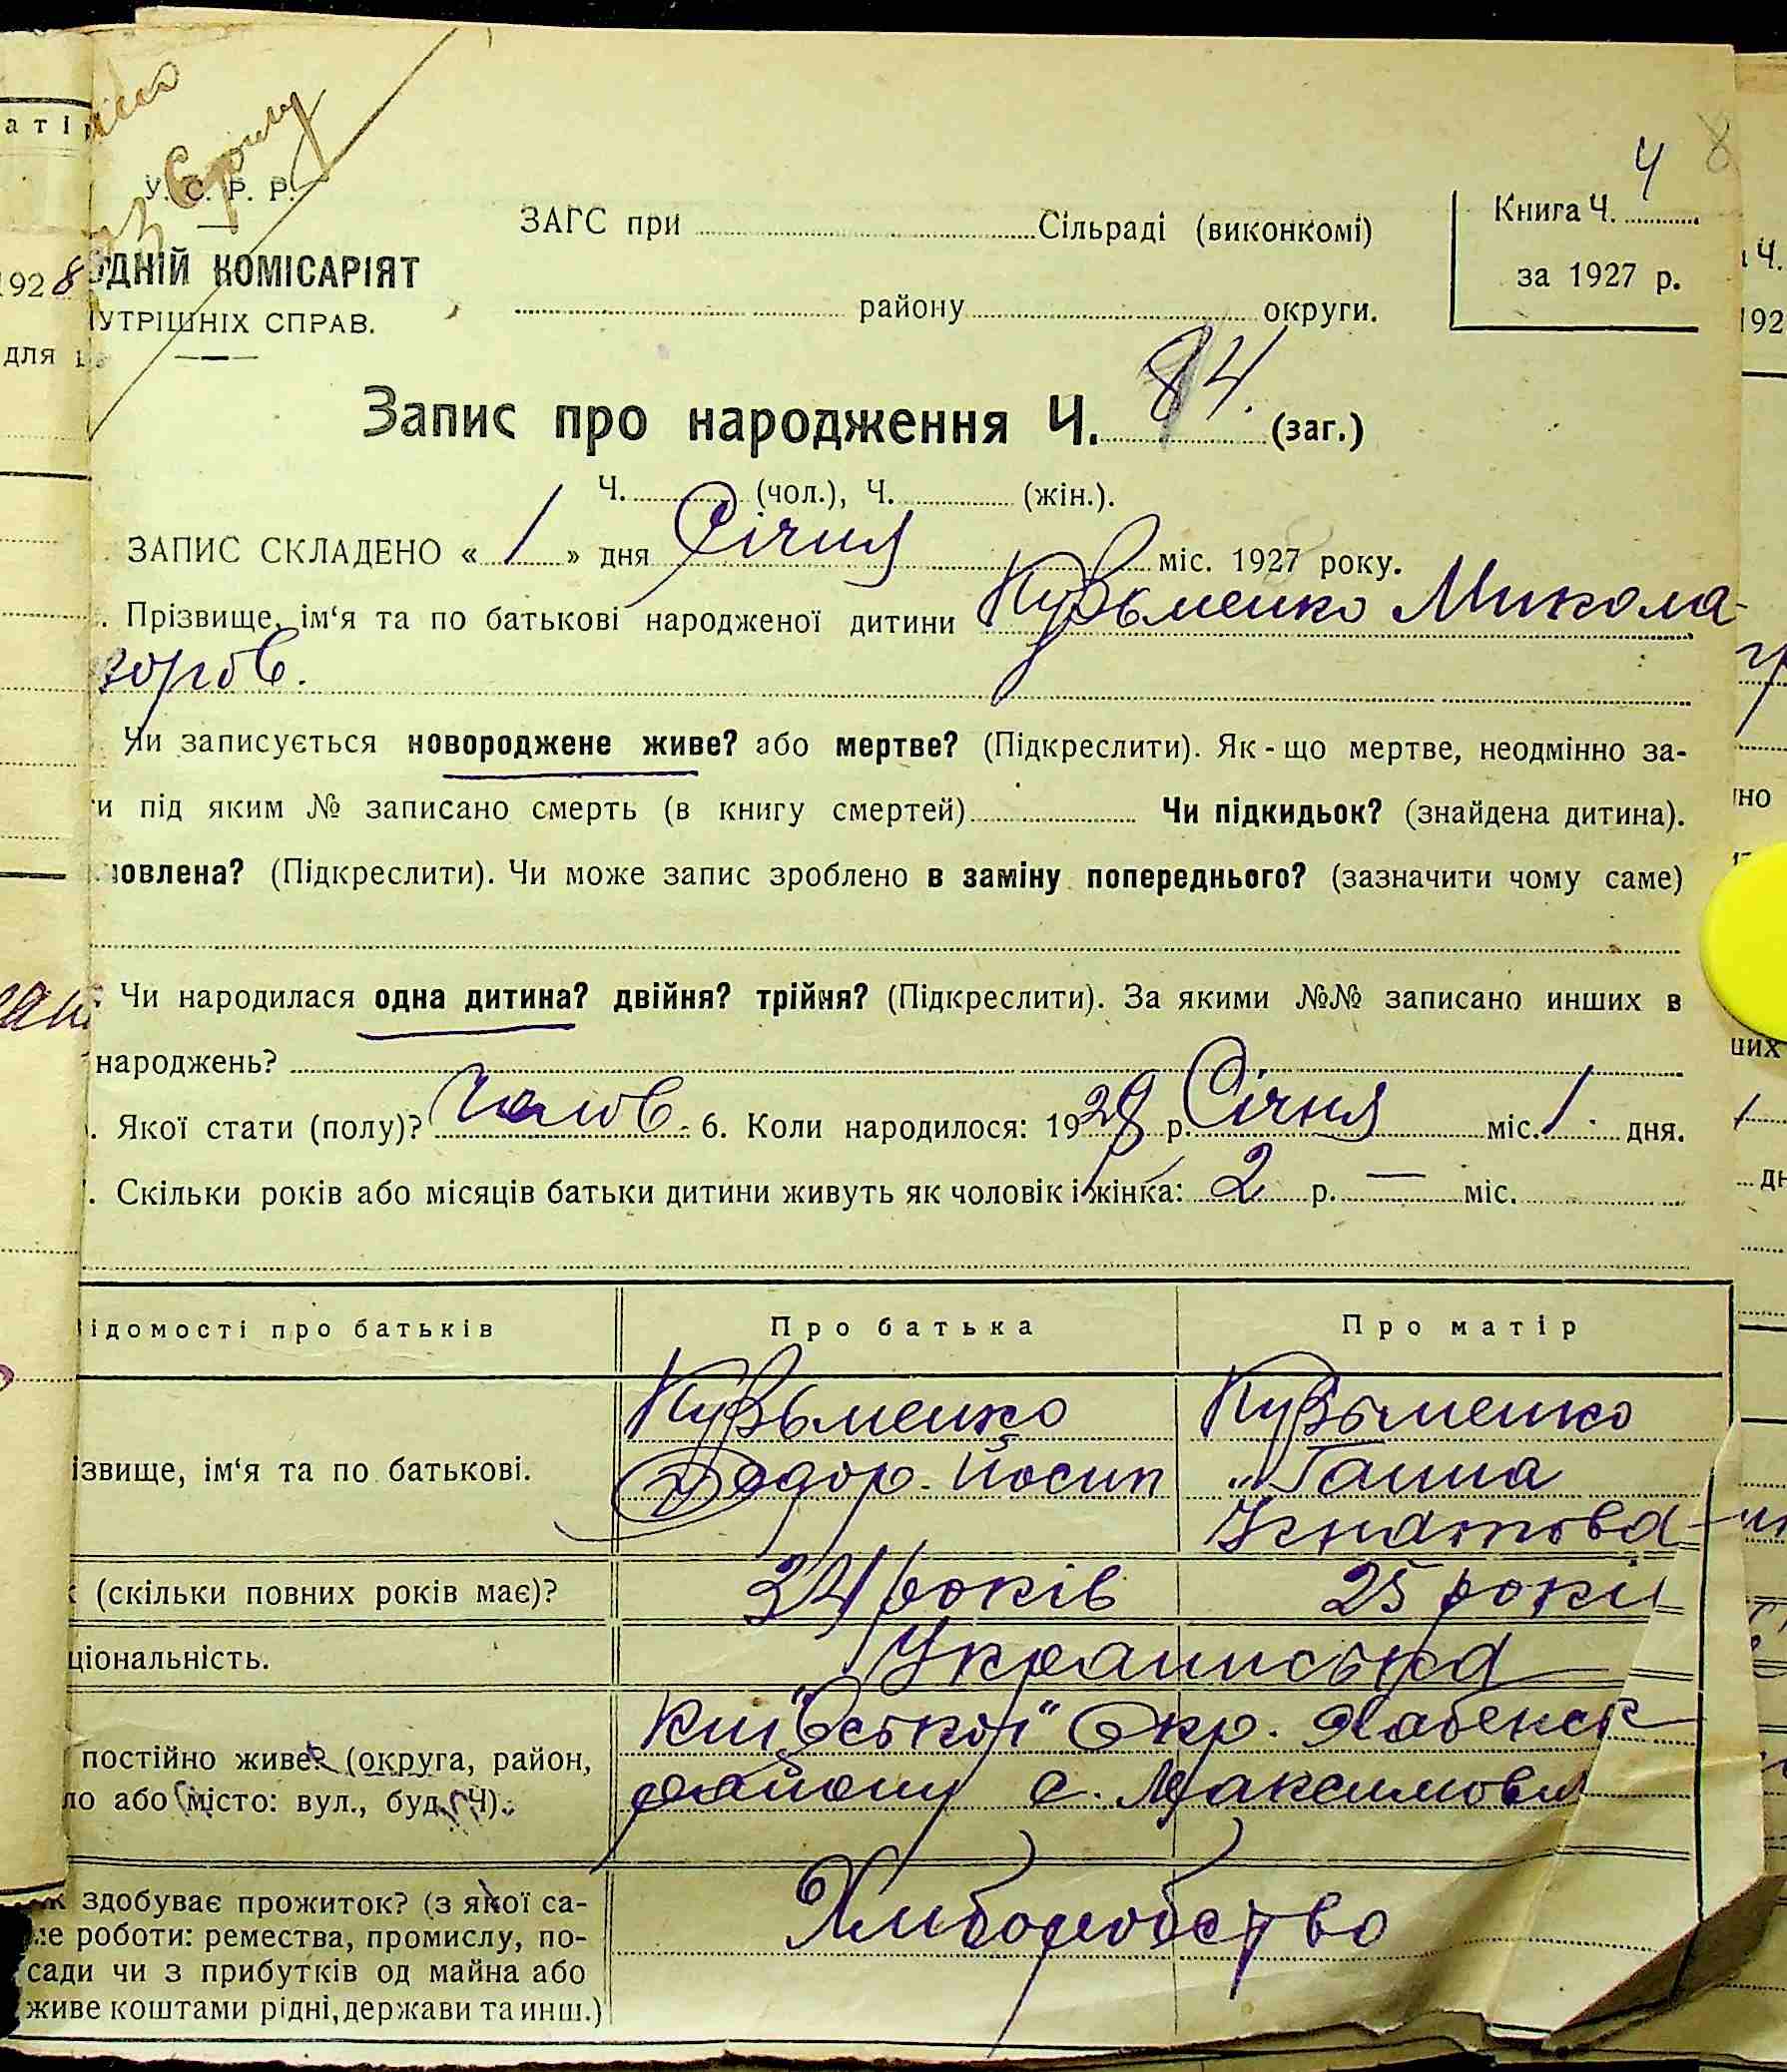 У. С. Р. Р.
ЗАГС при Сільраді (виконкомі)
Книга Ч. 4
ОДНІЙ КОМІСАРІЯТ
за 1927 р.
УТРІШНІХ СПРАВ.
району округи.
Запис про народження Ч. 84. (заг.)
Ч. (чол.), Ч. (жін.).
ЗАПИС СКЛАДЕНО « 1 » дня Січня міс. 1927 року.
. Прізвище, ім‘я та по батькові народженої дитини Кузьменко Микола
Чи записується новороджене живе? або мертве? (Підкреслити). Як-що мертве, неодмінно за-
и під яким № записано смерть (в книгу смертей) Чи підкидьок? (знайдена дитина).
новлена? (Підкреслити). Чи може запис зроблено в заміну попереднього? (зазначити чому саме)
Чи народилася одна дитина? двійня? трійня? (Підкреслити). За якими №№ записано инших в
народжень?
. Якої стати (полу)? Чолов. 6. Коли народилося: 1928 р. Січня міс. 1 дня.
. Скільки років або місяців батьки дитини живуть як чоловік і жінка: 2 р. — міс.
ідомості про батьків Про батька Про матір
Кузьменко Кузьменко
ізвище, ім‘я та по батькові. Федор. Йосип „ Ганна
Игнатова
(скільки повних років має)? 24 років 25 років
ціональність. Украинська
Київської Окр. Хабенск
постійно живе? (округа, район,
району с. Максимовичі
ло або місто: вул., буд. Ч).
Хліборобство
як здобуває прожиток? (з якої са-
ме роботи: ремества, промислу, по-
сади чи з прибутків од майна або
живе коштами рідні, держави та инш.)